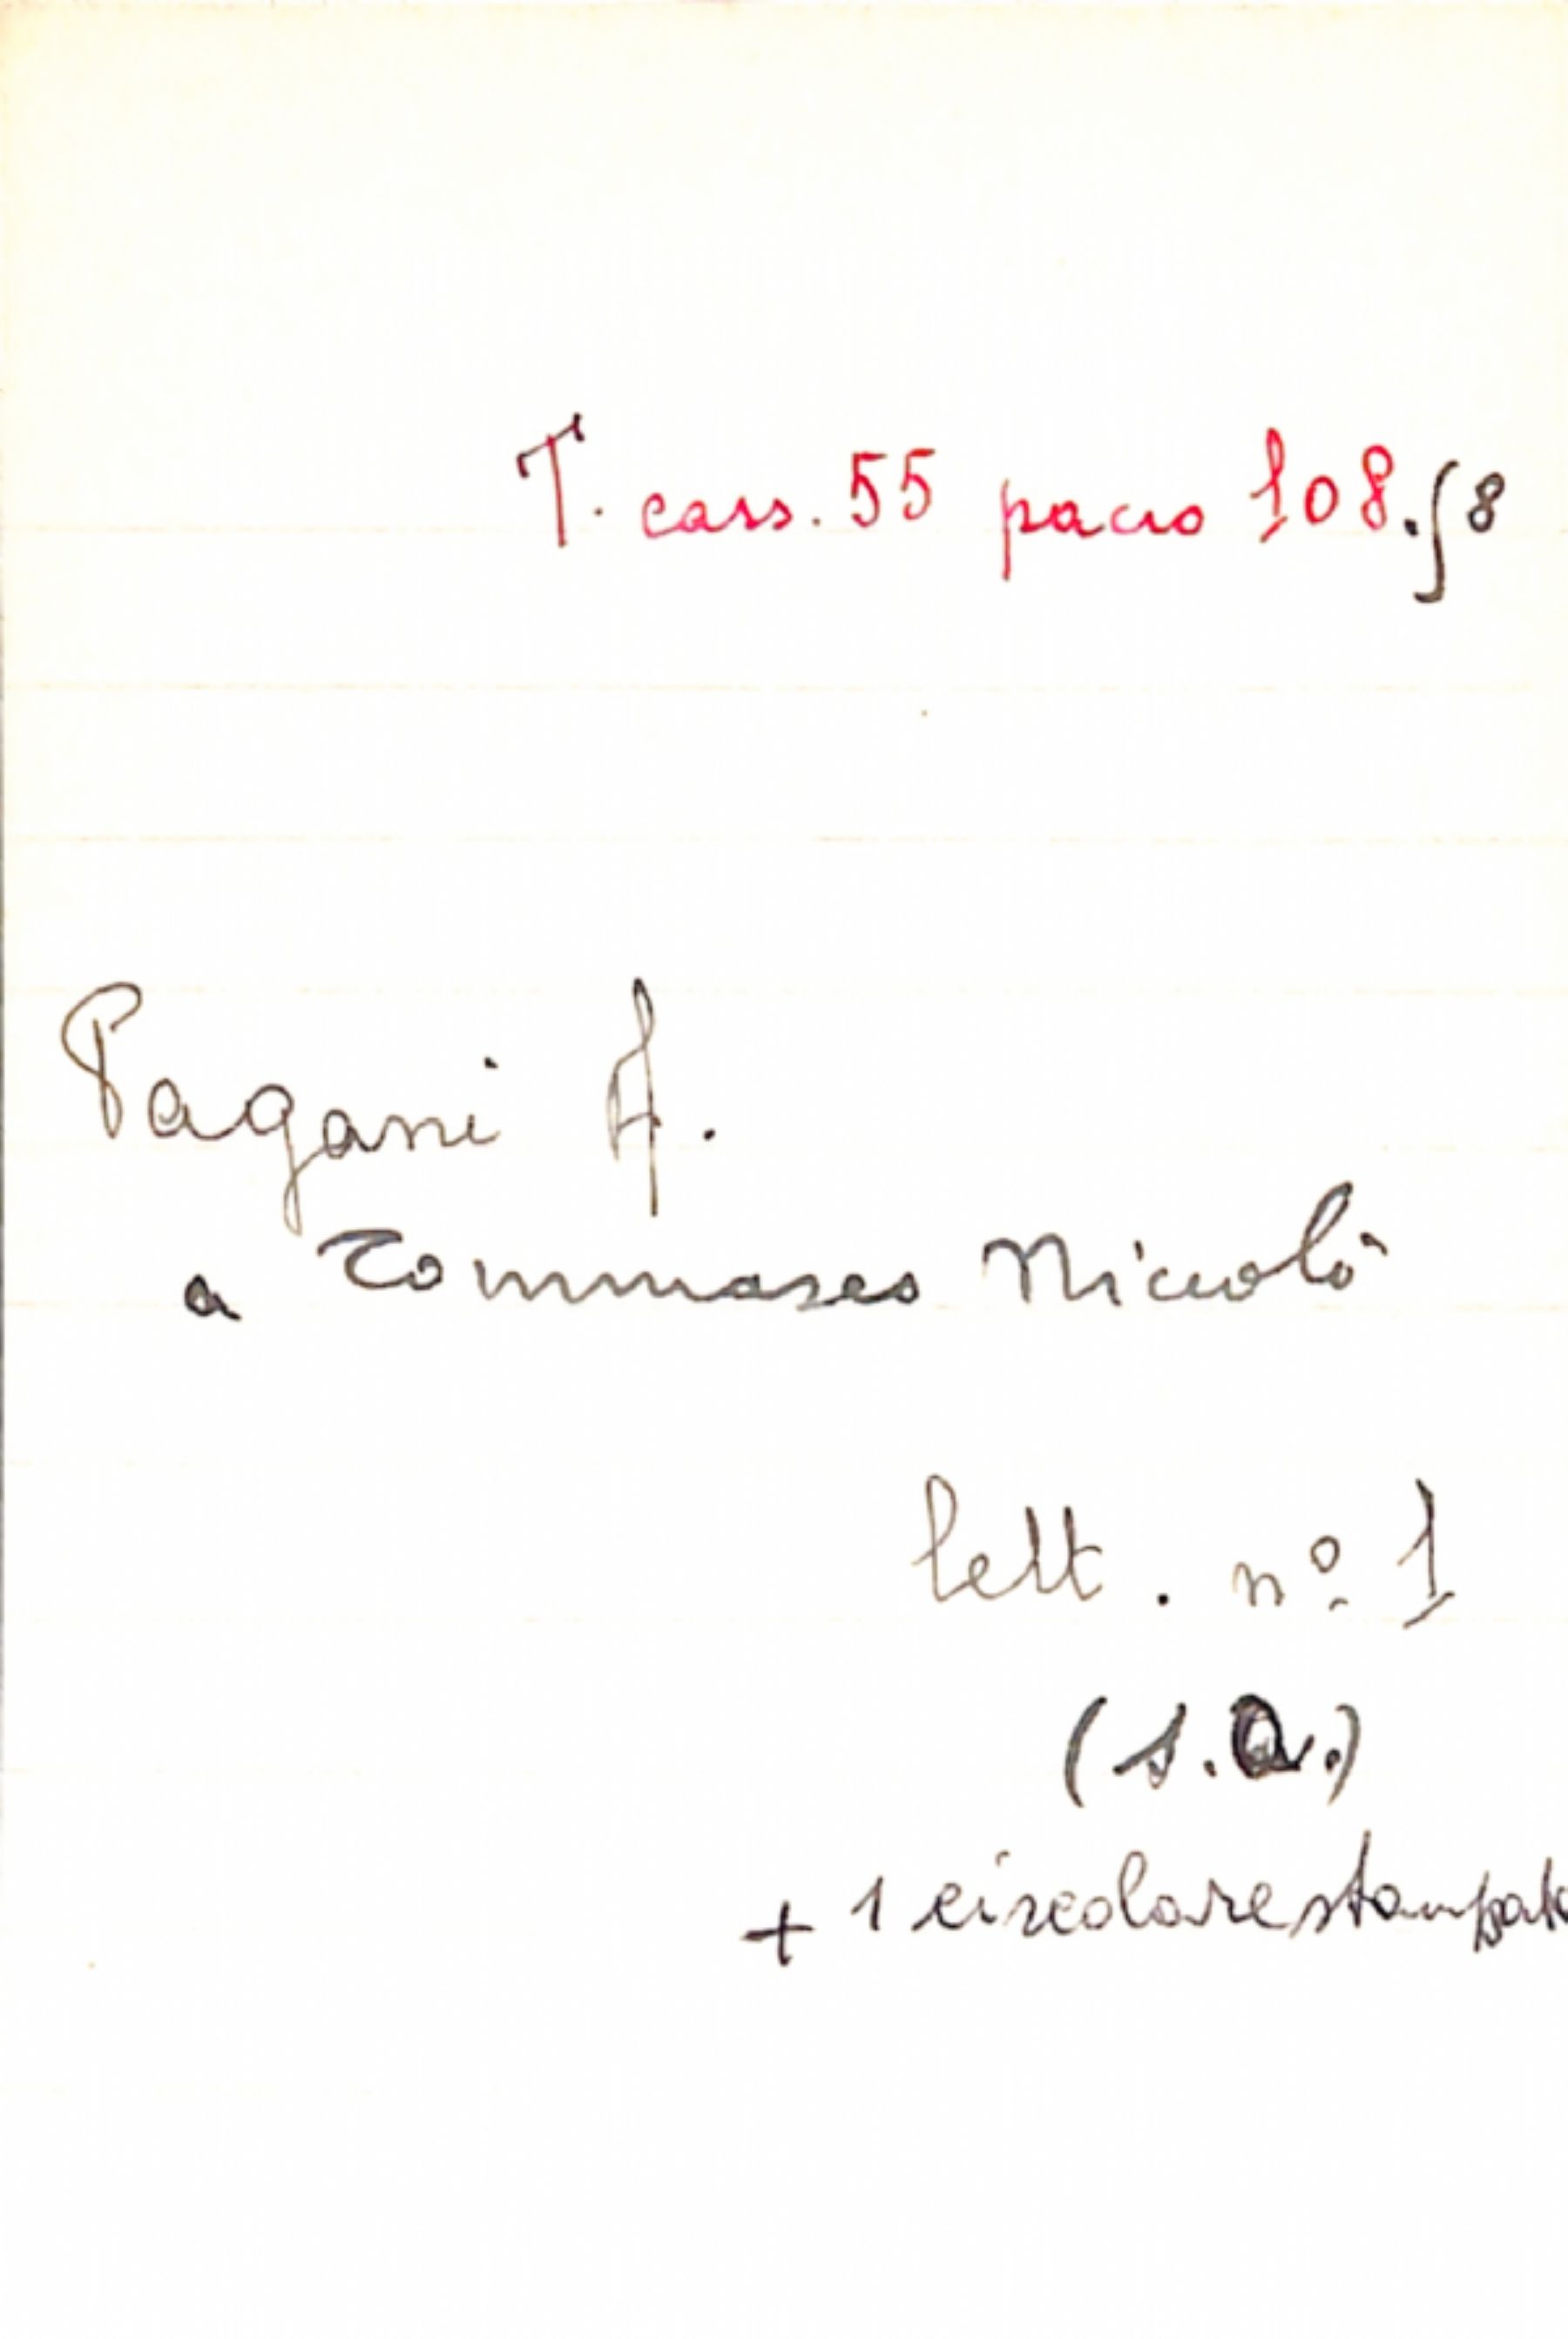 T. cass. 55 pacco 108.∫8
Pagani A.
a Tommaseo Niccolò
lett. nº 1
(s.a.)
+ 1 circolare stampat